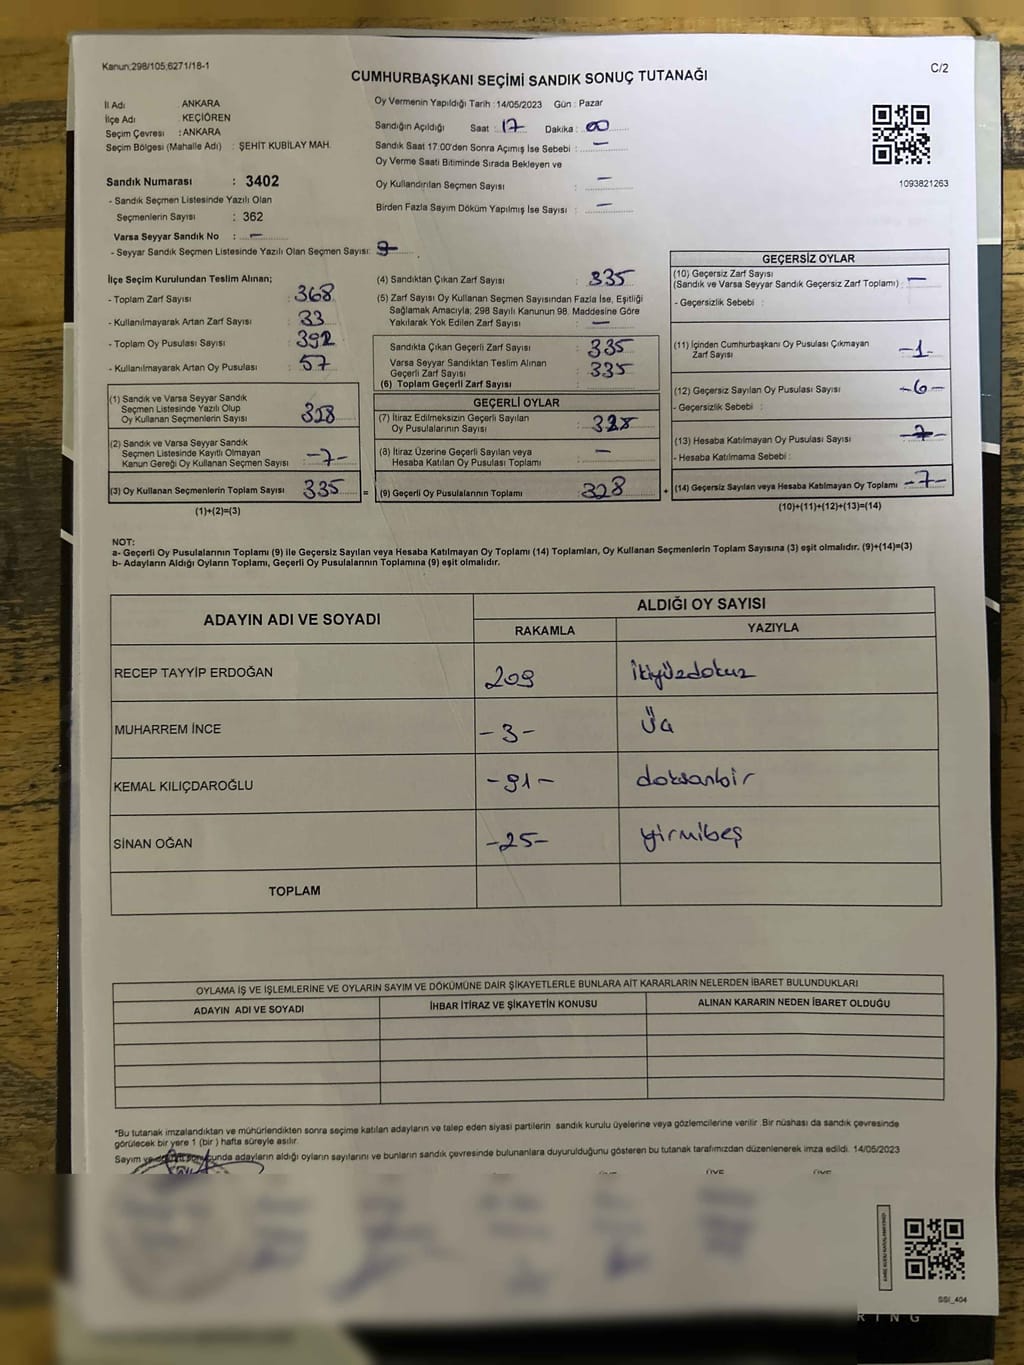 Kanun:298/105;6271/18-1
C/2
CUMHURBAŞKANI SEÇİMİ SANDIK SONUÇ TUTANAĞI
İl Adı : ANKARA
İlçe Adı : KEÇİÖREN
Seçim Çevresi : ANKARA
Seçim Bölgesi (Mahalle Adı) : ŞEHİT KUBİLAY MAH.
Sandık Numarası : 3402
- Sandık Seçmen Listesinde Yazılı Olan
Seçmenlerin Sayısı : 362
Varsa Seyyar Sandık No : –
- Seyyar Sandık Seçmen Listesinde Yazılı Olan Seçmen Sayısı:
Oy Vermenin Yapıldığı Tarih : 14/05/2023 Gün : Pazar
Sandığın Açıldığı Saat : 17 Dakika : 00
Sandık Saat 17:00'den Sonra Açımış İse Sebebi : –
Oy Verme Saati Bitiminde Sırada Bekleyen ve
Oy Kullandırılan Seçmen Sayısı : –
Birden Fazla Sayım Döküm Yapılmış İse Sayısı : –
1093821263
İlçe Seçim Kurulundan Teslim Alınan;
- Toplam Zarf Sayısı : 368
- Kullanılmayarak Artan Zarf Sayısı : 33
- Toplam Oy Pusulası Sayısı : 392
- Kullanılmayarak Artan Oy Pusulası : 57
(1) Sandık ve Varsa Seyyar Sandık
Seçmen Listesinde Yazılı Olup
Oy Kullanan Seçmenlerin Sayısı 328
(2) Sandık ve Varsa Seyyar Sandık
Seçmen Listesinde Kayıtlı Olmayan
Kanun Gereği Oy Kullanan Seçmen Sayısı -7-
(3) Oy Kullanan Seçmenlerin Toplam Sayısı 335 =
(1)+(2)=(3)
(4) Sandıktan Çıkan Zarf Sayısı : 335
(5) Zarf Sayısı Oy Kullanan Seçmen Sayısından Fazla İse, Eşitliği
Sağlamak Amacıyla; 298 Sayılı Kanunun 98. Maddesine Göre
Yakılarak Yok Edilen Zarf Sayısı : –
Sandıkta Çıkan Geçerli Zarf Sayısı : 335
Varsa Seyyar Sandıktan Teslim Alınan
Geçerli Zarf Sayısı : 335
(6) Toplam Geçerli Zarf Sayısı :
GEÇERLİ OYLAR
(7) İtiraz Edilmeksizin Geçerli Sayılan
Oy Pusulalarının Sayısı : 328
(8) İtiraz Üzerine Geçerli Sayılan veya
Hesaba Katılan Oy Pusulası Toplamı : –
(9) Geçerli Oy Pusulalarının Toplamı : 328 +
GEÇERSİZ OYLAR
(10) Geçersiz Zarf Sayısı
(Sandık ve Varsa Seyyar Sandık Geçersiz Zarf Toplamı) : –
- Geçersizlik Sebebi :
(11) İçinden Cumhurbaşkanı Oy Pusulası Çıkmayan
Zarf Sayısı -1-
(12) Geçersiz Sayılan Oy Pusulası Sayısı -6-
- Geçersizlik Sebebi :
(13) Hesaba Katılmayan Oy Pusulası Sayısı
- Hesaba Katılmama Sebebi :
(14) Geçersiz Sayılan veya Hesaba Katılmayan Oy Toplamı -7-
(10)+(11)+(12)+(13)=(14)
NOT:
a- Geçerli Oy Pusulalarının Toplamı (9) ile Geçersiz Sayılan veya Hesaba Katılmayan Oy Toplamı (14) Toplamları, Oy Kullanan Seçmenlerin Toplam Sayısına (3) eşit olmalıdır. (9)+(14)=(3)
b- Adayların Aldığı Oyların Toplamı, Geçerli Oy Pusulalarının Toplamına (9) eşit olmalıdır.
ADAYIN ADI VE SOYADI
ALDIĞI OY SAYISI
RAKAMLA YAZIYLA
RECEP TAYYİP ERDOĞAN 209 ikiyüzdokuz
MUHARREM İNCE -3- Üç
KEMAL KILIÇDAROĞLU -91- doksanbir
SİNAN OĞAN -25- yirmibeş
TOPLAM
OYLAMA İŞ VE İŞLEMLERİNE VE OYLARIN SAYIM VE DÖKÜMÜNE DAİR ŞİKAYETLERLE BUNLARA AİT KARARLARIN NELERDEN İBARET BULUNDUKLARI
ADAYIN ADI VE SOYADI İHBAR İTİRAZ VE ŞİKAYETİN KONUSU ALINAN KARARIN NEDEN İBARET OLDUĞU
*Bu tutanak imzalandıktan ve mühürlendikten sonra seçime katılan adayların ve talep eden siyasi partilerin sandık kurulu üyelerine veya gözlemcilerine verilir. Bir nüshası da sandık çevresinde
görülecek bir yere 1 (bir ) hafta süreyle asılır.
Sayım ve sonucunda adayların aldığı oyların sayılarını ve bunların sandık çevresinde bulunanlara duyurulduğunu gösteren bu tutanak tarafımızdan düzenlenerek imza edildi. 14/05/2023
ÜYE ÜYE ÜYE
SSİ_404
RING